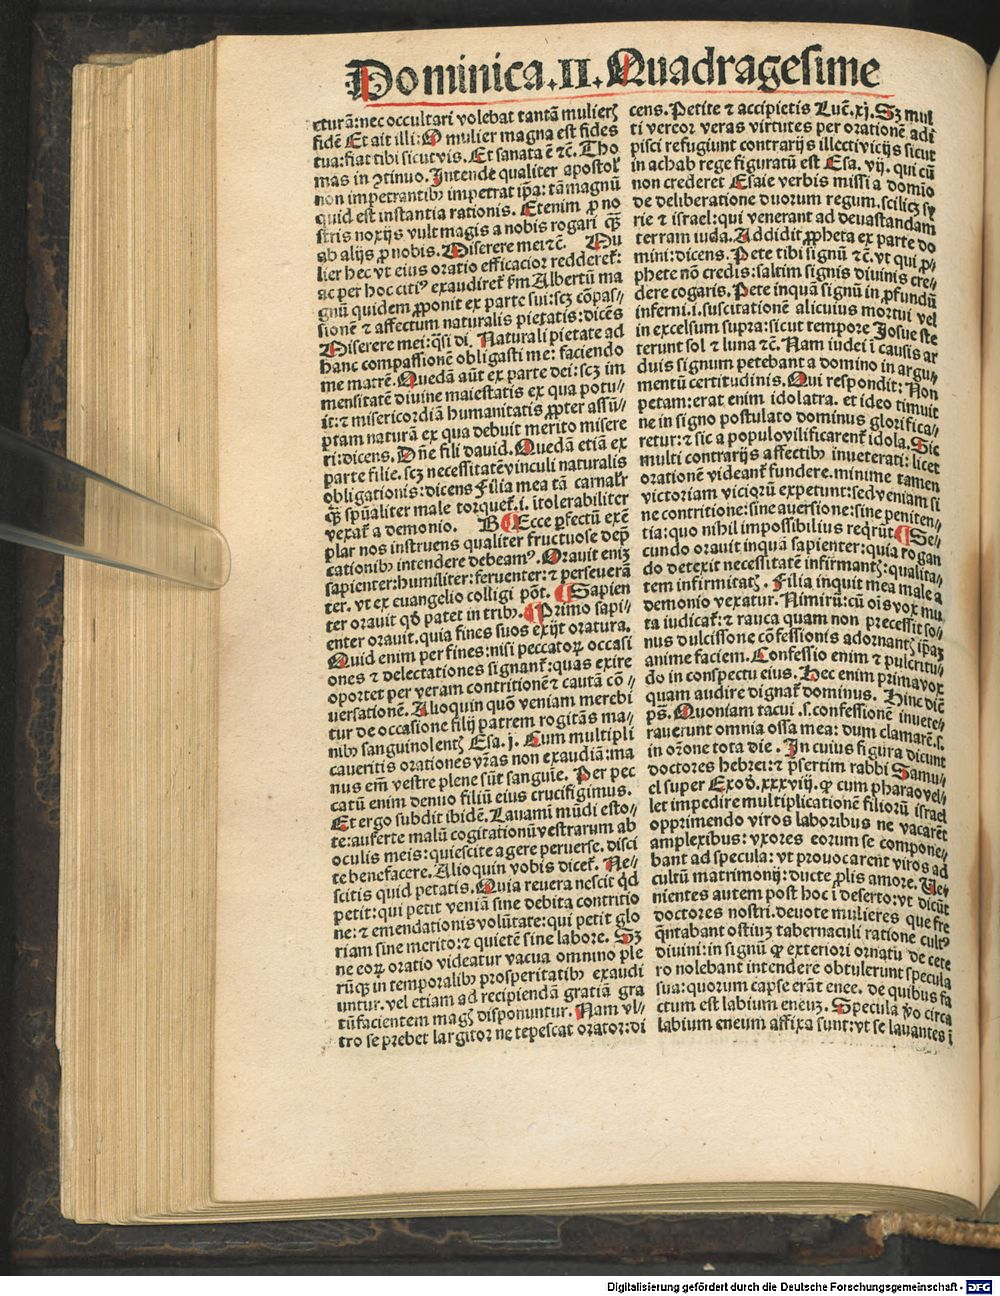 Dominica.II.Quadragesime
cturã:nec occultari volebat tantã mulierꝭ
fidẽ Et ait illi:O mulier magna est fides
tua:fiat tibi sicut vis. Et sanata ẽ ⁊c̃. Tho
mas in ꝯtinuo. Intende qualiter apostol
non impetrantibꝰ impetrat ip̃a: tã magnũ
quid est instantia rationis. Etenim ꝓ no
stris noxijs vult magis a nobis rogari qꝫ
ab alijs ꝓ nobis. Miserere mei ⁊c̃. Mu
lier hec vt eius oratio efficacior redderet̃:
ac per hoc citiꝰ exaudiret̃ ẜm Albertũ ma
gnũ quidem ꝓponit ex parte sui:scꝫ cõpas⸗
sionẽ ⁊ affectum naturalis pietatis:dicẽs
Miserere mei:q̃si di. Naturali pietate ad
hanc compassionẽ obligasti me: faciendo
me matrẽ. Quedã aũt ex parte dei:scꝫ im
mensitatẽ diuine maiestatis ex qua potu⸗
it:⁊ misericordiã humanitatis ꝓpter assũ⸗
ptam naturã ex qua debuit merito misere
ri:dicens. Dñe fili dauid. Quedã etiã ex
parte filie.scꝫ necessitatẽ vinculi naturalis
obligationis:dicens Filia mea tã carnalr̃
qꝫ spũaliter male torquet̃.i. ĩtolerabiliter
vexat̃ a demonio. B ¶Ecce ꝑfectũ exẽ
plar nos instruens qualiter fructuose dep̃
cationibꝰ intendere debeamꝰ. Orauit enim
sapienter:humiliter:feruenter:⁊ perseuerã
ter. vt ex euangelio colligi põt. ¶Sapien
ter orauit qđ patet in tribꝰ. ¶Primo sapi⸗
enter orauit.quia fines suos exijt oratura.
Quid enim per fines:nisi peccatoꝝ occasi
ones ⁊ delectationes signant̃:quas exire
oportet per veram contritionẽ ⁊ cautã cõ⸗
uersationẽ. Alioquin quõ veniam merebi
tur de occasione filij patrem rogitãs ma⸗
nibꝰ sanguinolentꝭ Esa. j. Cum multipli
caueritis orationes vr̃as non exaudiã:ma
nus em̃ vestre plene sũt sanguĩe. Per pec
catũ enim denuo filiũ eius crucifigimus.
Et ergo subdit ibidẽ. Lauamĩ mũdi esto⸗
te:auferte malũ cogitationũ vestrarum ab
oculis meis:quiescite agere peruerse. disci
te benefacere. Alioquin vobis dicet̃. Ne⸗
scitis quid petatis. Quia reuera nescit qđ
petit:qui petit veniã sine debita contritio
ne:⁊ emendationis volũtate:qui petit glo
riam sine merito:⁊ quietẽ sine labore. Sꝫ
ne eoꝝ oratio videatur vacua omnino ple
rũqꝫ in temporalibꝰ prosperitatibꝰ exaudi
untur. vel etiam ad recipiendã gratiã gra
tũ facientem magꝭ disponuntur. Nam vl⸗
tro se prebet largitor ne tepescat orator:di
cens. Petite ⁊ accipietis Luc̃.xj. Sꝫ mul
ti vercor veras virtutes per orationẽ adi
pisci refugiunt contrarijs illecti vicijs sicut
in achab rege figuratũ est Esa. vij. qui cũ
non crederet Esaie verbis missi a domĩo
de deliberatione duorum regum.scilicꝫ sy
rie ⁊ israel:qui venerant ad deuastandam
terram iuda. Addidit ꝓpheta ex parte do
mini:dicens. Pete tibi signũ ⁊c̃. vt qui ꝓ⸗
phete nõ credis:saltim signis diuinis cre⸗
dere cogaris. Pete inquã signũ in ꝓfundũ
inferni.i.suscitationẽ alicuius mortui vel
in excelsum supra:sicut tempore Josue ste
terunt sol ⁊ luna ⁊c̃. Nam iudei ĩ causis ar
duis signum petebant a domino in argu⸗
mentũ certitudinis. Qui respondit: Non
petam:erat enim idolatra. et ideo timuit
ne in signo postulato dominus glorifica⸗
retur:⁊ sic a populo vilificarent̃ idola. Sic
multi contrarijs affectibꝰ inueterati: licet
orationẽ videant̃ fundere. minime tamen
victoriam vicioꝝ expetunt:sed veniam si
ne contritione:sine auersione:sine peniten⸗
tia:quo nihil impossibilius reqrũt. ¶Se⸗
cundo orauit inquã sapienter:quia rogan
do detexit necessitatẽ infirmantꝭ:qualita⸗
tem infirmitatꝭ. Filia inquit mea male a
demonio vexatur. Nimirũ:cũ oĩs vox mu
ta iudicat̃:⁊ rauca quam non precessit so⸗
nus dulcissone cõfessionis adornantꝭ ip̃aꝫ
anime faciem. Confessio enim ⁊ pulcritu⸗
do in conspectu eius. Hec enim prima vox
quam audire dignat̃ dominus. Hinc diẽ
ps̃. Quoniam tacui .s.confessionẽ inuete⸗
rauerunt omnia ossa mea: dum clamarẽ.s.
in or̃one tota die. In cuius figura dicunt
doctores hebrei:⁊ p̃sertim rabbi Samu⸗
el super Exođ.xxxviij. ꝙ cum pharao vel⸗
let impedire multiplicationẽ filioꝝ israel
opprimendo viros laboribus ne vacarẽt
amplexibus: vxores eorum se compone⸗
bant ad specula: vt prouocarent viros ad
cultũ matrimonij: ducte ꝓlis amore. Ve⸗
nientes autem post hoc ĩ deserto:vt dicũt
doctores nostri.deuote mulieres que fre
q̃ntabant ostiuꝫ tabernaculi ratione cultꝰ
diuini:in signũ ꝙ exteriori ornatu de cete
ro nolebant intendere obtulerunt specula
sua:quorum capse erãt enee. de quibus fa
ctum est labium eneuꝫ. Specula ṽo circa
labium eneum affixa sunt:vt se lauantes ĩ
Digitalisierung gefördert durch die Deutsche Forschungsgemeinschaft - DFG